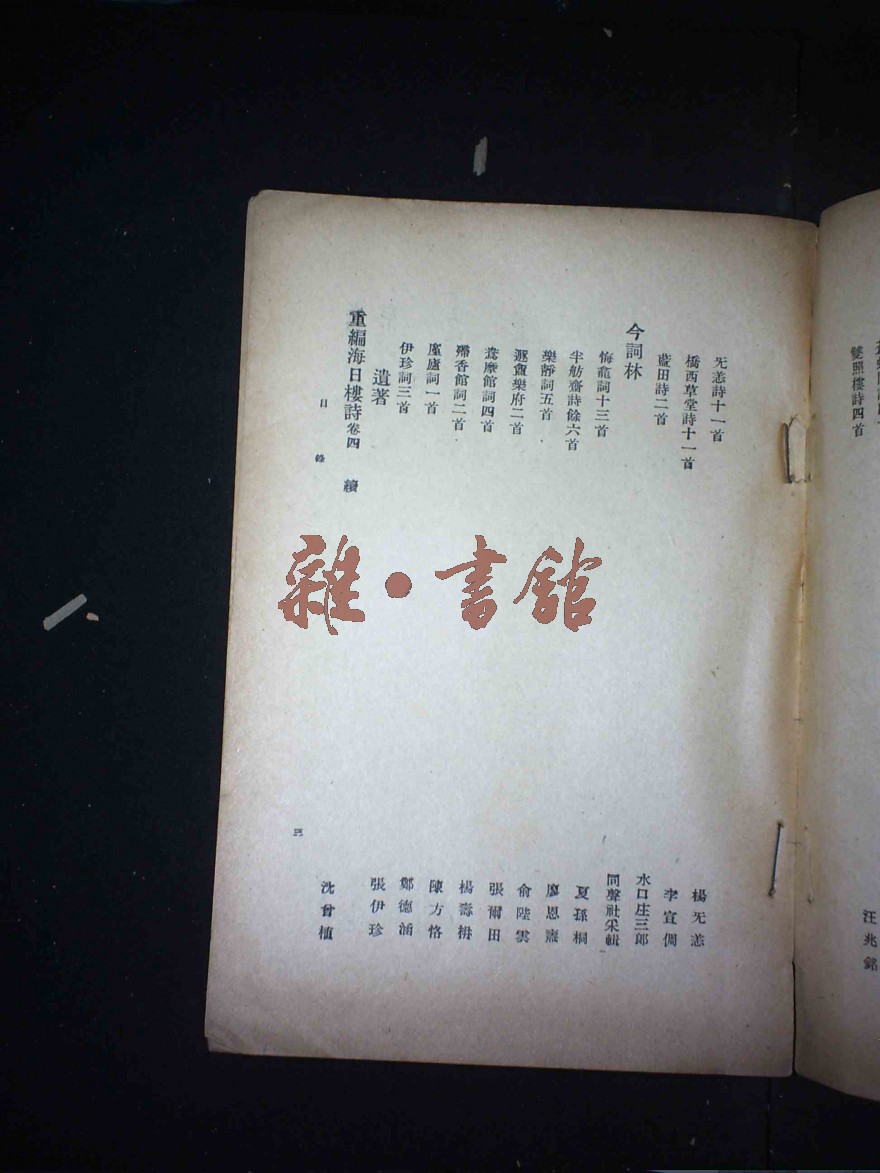 雙照樓詩四首
汪兆銘
无恙詩十一首
楊无恙
橋西草堂詩十一首
李宣倜
藍田詩二首
水口庄三郎
今詞林
同聲社采輯
悔龕詞十三首
夏孫桐
半舫齋詩餘六首
廖恩燾
樂靜詞五首
俞陛雲
遯盦樂府二首
張爾田
鴦摩館詞四首
楊壽枏
殢香館詞二首
陳方恪
厪廬詞一首
鄭德涵
伊珍詞三首
張伊珍
遺著
重編海日樓詩卷四 續
沈曾植
目錄
雜·書館